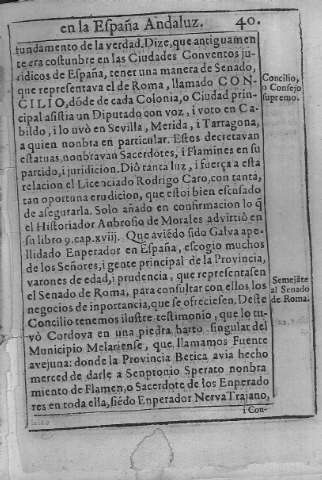 en la España Andaluz. 40.
fundamento de la verdad. Dize, que antiguamen
te era costunbre en las Ciudades Conventos ju-
ridicos de España, tener una manera de Senado,
que representava el de Roma, llamado CON-
CILIO, dóde de cada Colonia, o Ciudad prin-
cipal asistia un Diputado con voz, i voto en Ca-
bildo, i lo uvò en Sevilla, Merida, i Tarragona,
a quien nonbra en particular. Estos decretavan
estatuas, nonbravan Sacerdotes, i Flamines en su
partido, i juridicion. Diò tanta luz, i fuerça a esta
relacion el Licenciado Rodrigo Caro, con tanta,
tan oportuna erudicion, que estoi bien escusado
de asegurarla. Solo añado en confirmacion lo q̃
el Historiador Anbrosio de Morales advirtiò en
su libro 9. cap. xviij. Que aviédo sido Galva ape-
llidado Enperador en España, escogio muchos
de los Señores, i gente principal de la Provincia,
varones de edad, i prudencia, que representasen
el Senado de Roma, para consultar con ellos, los
negocios de inportancia, que se ofreciesen. Deste
Concilio tenemos ilustre testimonio, que lo tu-
vò Cordova en una piedra harto singular del
Municipio Melariense, que llamamos Fuente
avejuna: donde la Provincia Betica avia hecho
merced de darle a Senptonio Sperato nonbra
miento de Flamen, o Sacerdote de los Enperado
res en toda ella, siédo Enperador Nerva Trajano,
i Con-
Concilio,
o Consejo
supremo.
Semejáte
al Senado
de Roma.